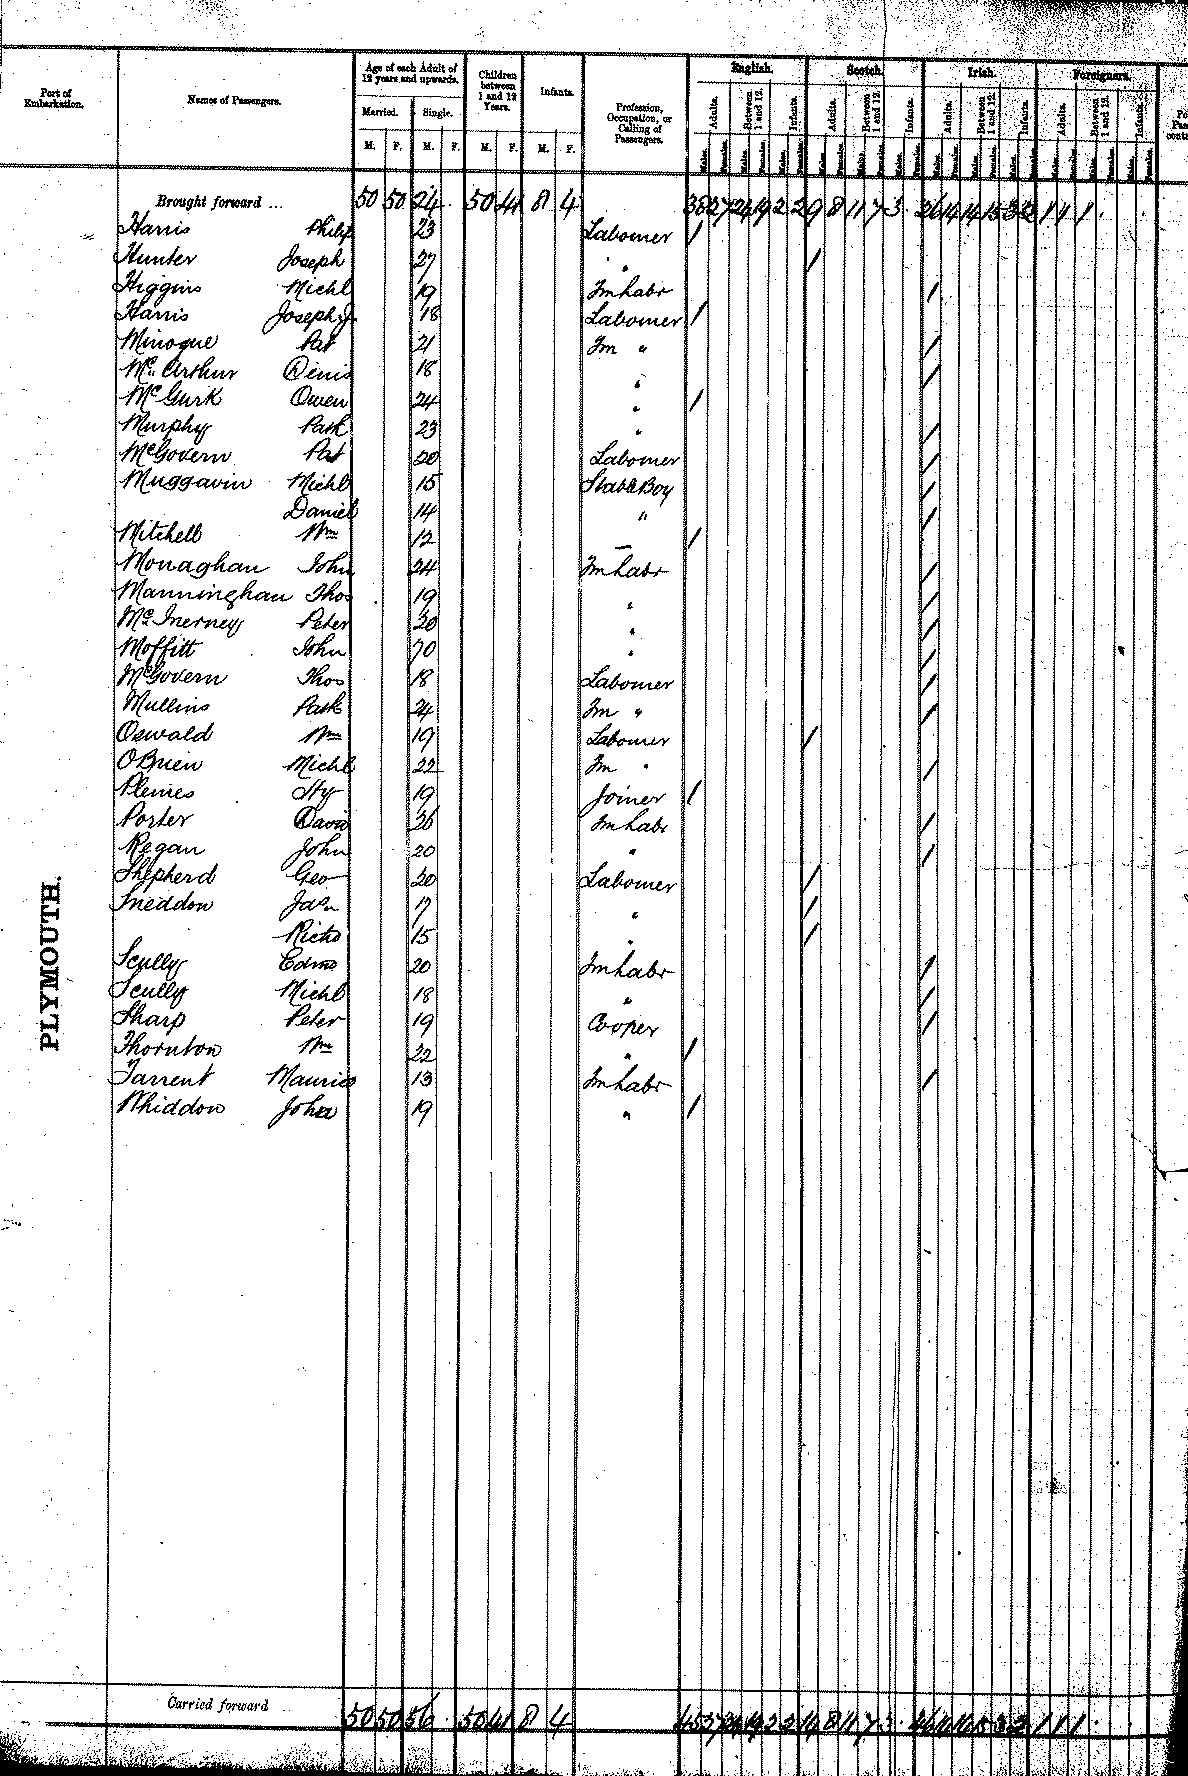 Port of Embarkation. Names of Passengers. Age of each Adult of 12 years and upwards. Children between 1 and 12 Years. Infants. Profession, Occupation, or Calling of Passengers. English. Scotch. Irish. Foreigners.
Married. Single. Adults. Between 1 and 12. Infants. Adults. Between 1 and 12. Infants. Adults. Between 1 and 12. Infants. Adults. Between 1 and 12. Infants.
M. F. M. F. M. F. M. F. Males. Females. Males. Females. Males. Females. Males. Females. Males. Females. Males. Females. Males. Females. Males. Females. Males. Females. Males. Females. Males. Females. Males. Females.
Brought forward ... 50 50 24 50 41 8 4 38 27 24 19 2 2 9 8 11 7 3 26 14 14 15 3 2 1 1 1
Harris Philip 23 Labourer /
Hunter Joseph 27 " /
Higgins Michl 19 Fm labr /
Harris Joseph J. 18 Labourer /
Minogue Pat 21 Fm " /
Mc Arthur Denis 18 " /
McGurk Owen 24 " /
Murphy Patk 23 " /
McGovern Pat 20 Labourer /
Muggavin Michl 15 Stable Boy /
Daniel 14 " /
Mitchell Wm 12 — /
Monaghan John 24 Fm labr /
Manninghan Thos 19 " /
McInerney Peter 20 " /
Moffitt John 20 " /
McGovern Thos 18 Labourer /
Mullins Patk 24 Fm " /
Oswald Wm 19 Labourer /
OBrien Michl 22 Fm " /
Plemes Hy 19 Joiner /
Porter David 26 Fm labr /
Regan John 20 " /
Shepherd Geo 20 Labourer /
Sneddon Jas 17 " /
Richd 15 " /
Scully Edmd 20 Fm labr /
Scully Michl 18 " /
Sharp Peter 19 Cooper /
Thornton Wm 22 " /
Tarrent Maurice 13 Fm labr /
Whiddon John 19 " /
PLYMOUTH.
Carried forward 50 50 56 50 41 8 4 45 27 24 19 2 2 14 8 11 7 3 46 14 14 15 3 2 1 1 1